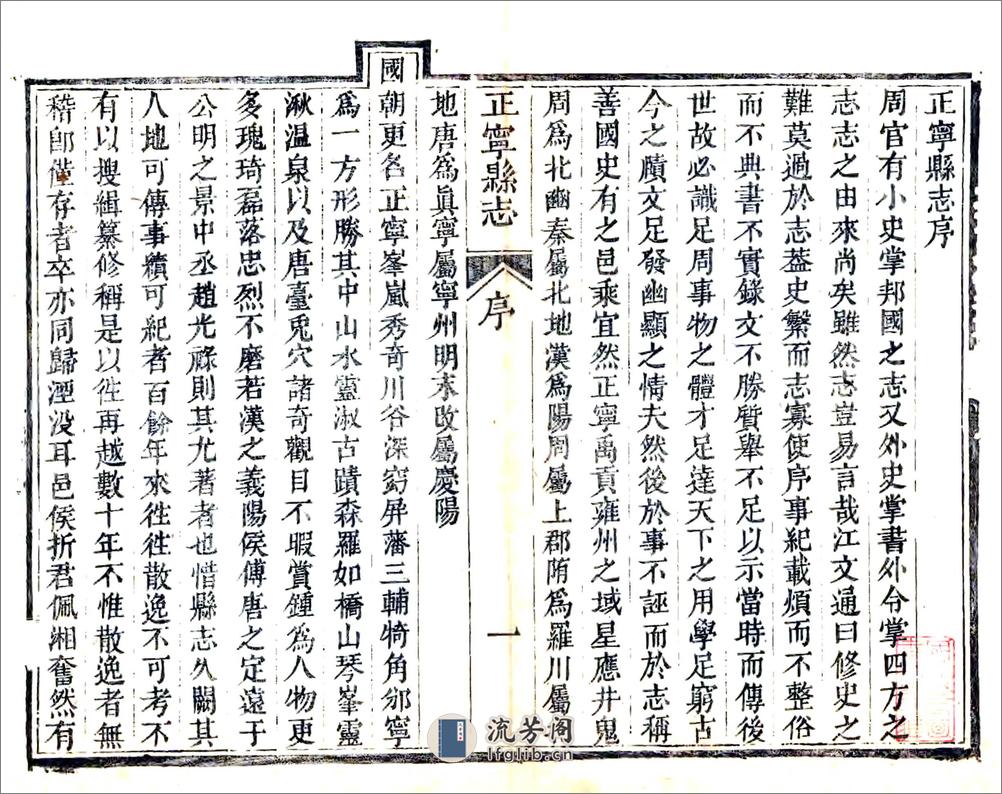 正寧縣志序
周官有小史掌邦國之志又外史掌書外令掌四方之
志志之由來尚矣雖然志豈易言哉江文通曰修史之
難莫過於志蓋史繁而志寡使序事紀載煩而不整俗
而不典書不實錄文不勝質舉不足以示當時而傳後
世故必識足周事物之體才足達天下之用學足窮古
今之牘文足發幽顯之情夫然後於事不誣而於志稱
善國史有之邑乘宜然正寧禹貢雍州之域星應井鬼
周為北豳秦屬北地漢為陽周屬上郡隋為羅川屬
正寧縣志
序
一
地唐為眞寧屬寧州明末改屬慶陽
國
朝更名正寧峯嵐秀奇川谷深窈屏藩三輔犄角邠寧
為一方形勝其中山水靈淑古蹟森羅如橋山琴峯靈
湫溫泉以及唐臺兎穴諸奇觀目不暇賞鍾為人物更
多瑰琦磊落忠烈不磨若漢之義陽侯傅唐之定遠于
公明之景中丞趙光祿則其尤著者也惜縣志久闕其
人地可傳事蹟可紀者百餘年來徃徃散逸不可考不
有以搜緝纂修稱是以徃再越數十年不惟散逸者無
稽卽僅存者卒亦同歸湮没耳邑侯折君佩湘奮然有
流芳阁
lfglib.cn